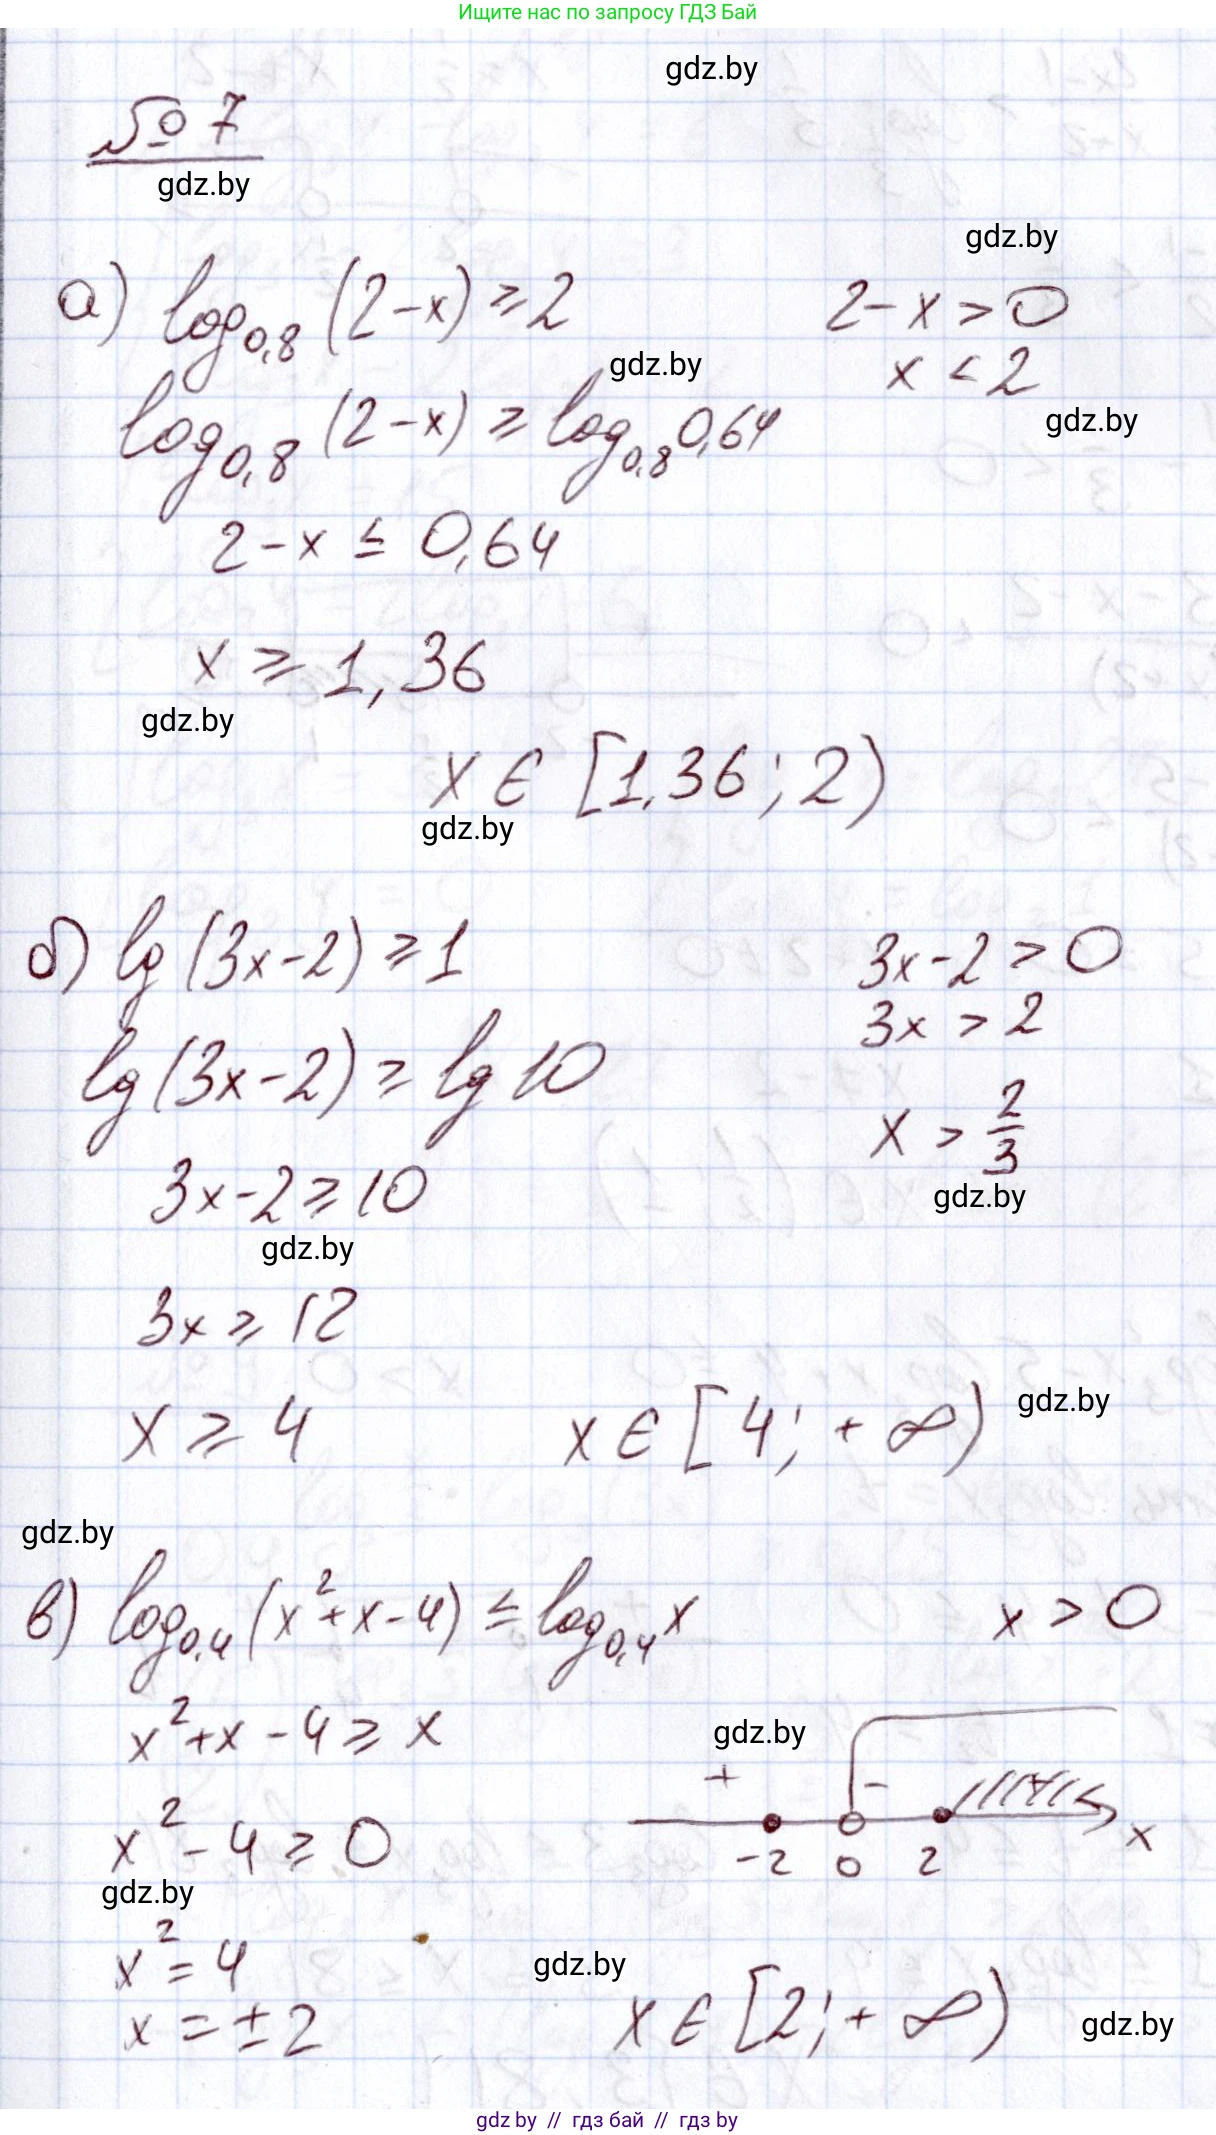 Ищите нас по запросу ГДЗ Бай
gdz.by
№ 7
gdz.by
gdz.by
а) log₀,₈ (2-x) ≥ 2
2-x > 0
gdz.by
x < 2
gdz.by
log₀,₈ (2-x) ≥ log₀,₈ 0,64
2-x ≤ 0,64
x ≥ 1,36
gdz.by
x ∈ [1,36; 2)
gdz.by
б) lg (3x-2) ≥ 1
3x-2 > 0
3x > 2
lg (3x-2) ≥ lg 10
x > 2/3
3x-2 ≥ 10
gdz.by
gdz.by
3x ≥ 12
x ≥ 4
x ∈ [4; +∞)
gdz.by
gdz.by
в) log₀,₄ (x²+x-4) ≤ log₀,₄ x
x > 0
x²+x-4 ≥ x
gdz.by
+ - +
-2 0 2 x
x²-4 ≥ 0
gdz.by
x² = 4
gdz.by
x = ±2
x ∈ [2; +∞)
gdz.by
gdz by // гдз бай // гдз by